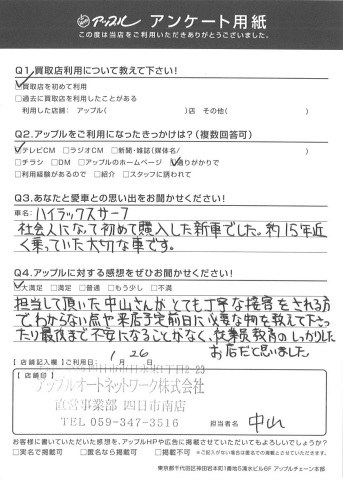 アップル アンケート用紙
この度は当店をご利用いただきありがとうございました。
Q1.買取店利用について教えて下さい!
☑買取店を初めて利用
□過去に買取店を利用したことがある
利用した店舗: アップル( )店 その他( )
Q2.アップルをご利用になったきっかけは?(複数回答可)
☑テレビCM □ラジオCM □新聞・雑誌(媒体名/ )
□チラシ □DM □アップルのホームページ ☑通りがかりで
□利用経験があるので □紹介 □スタッフに誘われて
Q3.あなたと愛車との思い出をお聞かせください!
車名: ハイラックスサーフ
社会人になって初めて購入した新車でした。約15年近
く乗っていた大切な車です。
Q4.アップルに対する感想をぜひお聞かせください!
☑大満足 □満足 □普通 □もう少し □不満
担当して頂いた中山さんがとても丁寧な接客をされる方
で、わからない点や来店予定前日に必要な物を教えて下さっ
たり最後まで不安になることがなく、従業員教育のしっかりした
お店だと思いました
【店舗記入欄】ご利用日: 1月 26
【店舗印】
アップルオートネットワーク株式会社
直営事業部 四日市南店
TEL 059-347-3516
担当者名 中山
お客様に書いていただいた感想を、アップルHPや広告に掲載させていただいてもよろしいでしょうか?
□実名で掲載可 □匿名なら掲載可 □掲載不可 ※ご記入がない場合は匿名での掲載とさせていただきます。
東京都千代田区神田岩本町1番地5清水ビル6F アップルチェーン本部